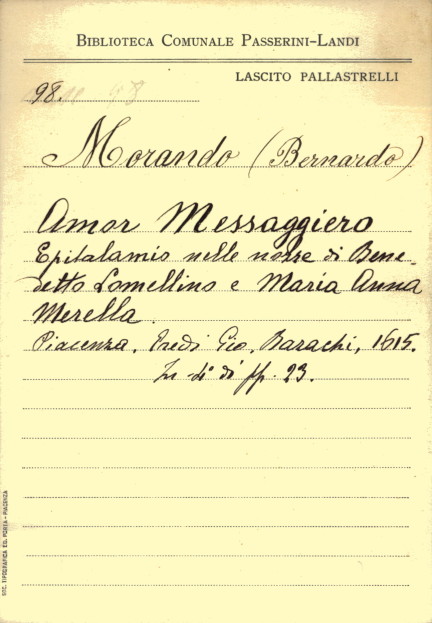 BIBLIOTECA COMUNALE PASSERINI-LANDI
LASCITO PALLASTRELLI
98.
Morando (Bernardo)
Amor Messaggiero
Epitalamio nelle nozze di Bene-
detto Lomellino e Maria Anna
Merella.
Piacenza, Eredi Gio. Bazachi, 1615.
In 4° di pp. 23.
SOC. TIPOGRAFICA ED. PORTA - PIACENZA